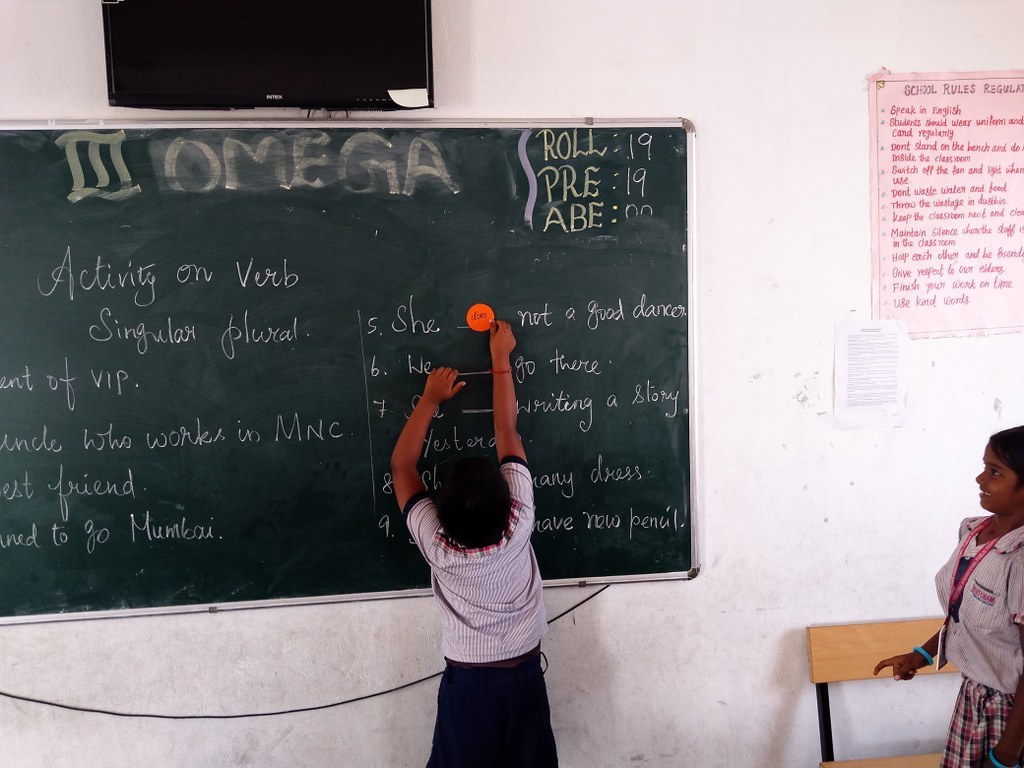 INTEX
III OMEGA
ROLL : 19
PRE : 19
ABE : 00
Activity on Verb
Singular plural.
ent of VIP.
uncle who works in MNC.
est friend.
ned to go Mumbai.
5. She does not a good dancer.
6. We ___ go there.
7. She ___ writing a story
Yesterday.
8. Sh many dress.
9. have now pencil.
SCHOOL RULES REGULAT
Speak in English
Students should wear uniform and
card regularly
Dont stand on the bench and do
Inside the classroom
Switch off the fan and light when
use
Dont waste water and food.
Throw the wastage in dustbin
Keep the classroom neat and clea
Maintain silence when the staff is
in the classroom
Help each other and be friendly
Give respect to our elders
Finish your work on time
Use kind words